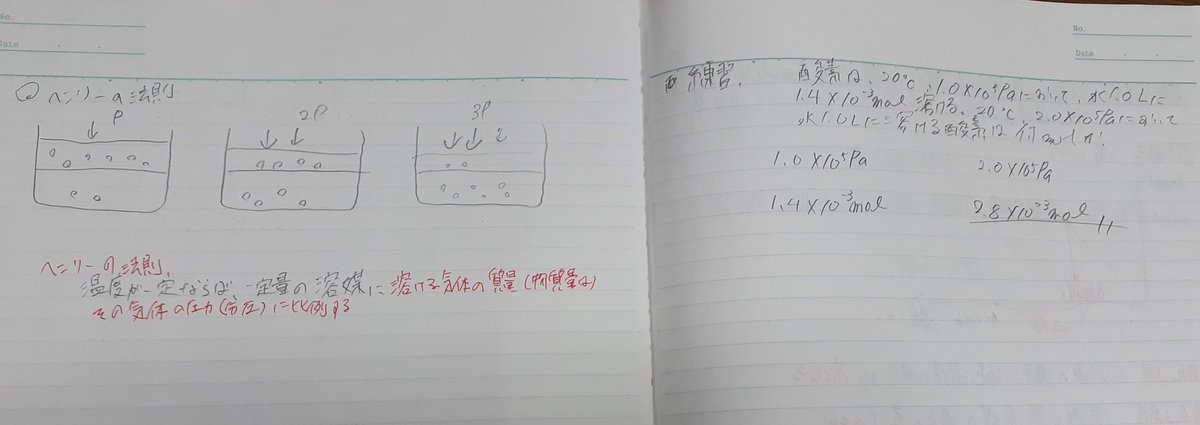 No.
Date
ヘンリーの法則
P
2P
3P
ヘンリーの法則
温度が一定ならば、一定量の溶媒に溶ける気体の質量(物質量は)
その気体の圧力(分圧)に比例する
No.
Date
練習. 酸素は、20℃、1.0×10⁵Paにおいて、水1.0Lに
1.4×10⁻³mol溶ける。20℃、2.0×10⁵Paにおいて
水1.0Lに溶ける酸素は何molか?
1.0×10⁵Pa 2.0×10⁵Pa
1.4×10⁻³mol 2.8×10⁻³mol